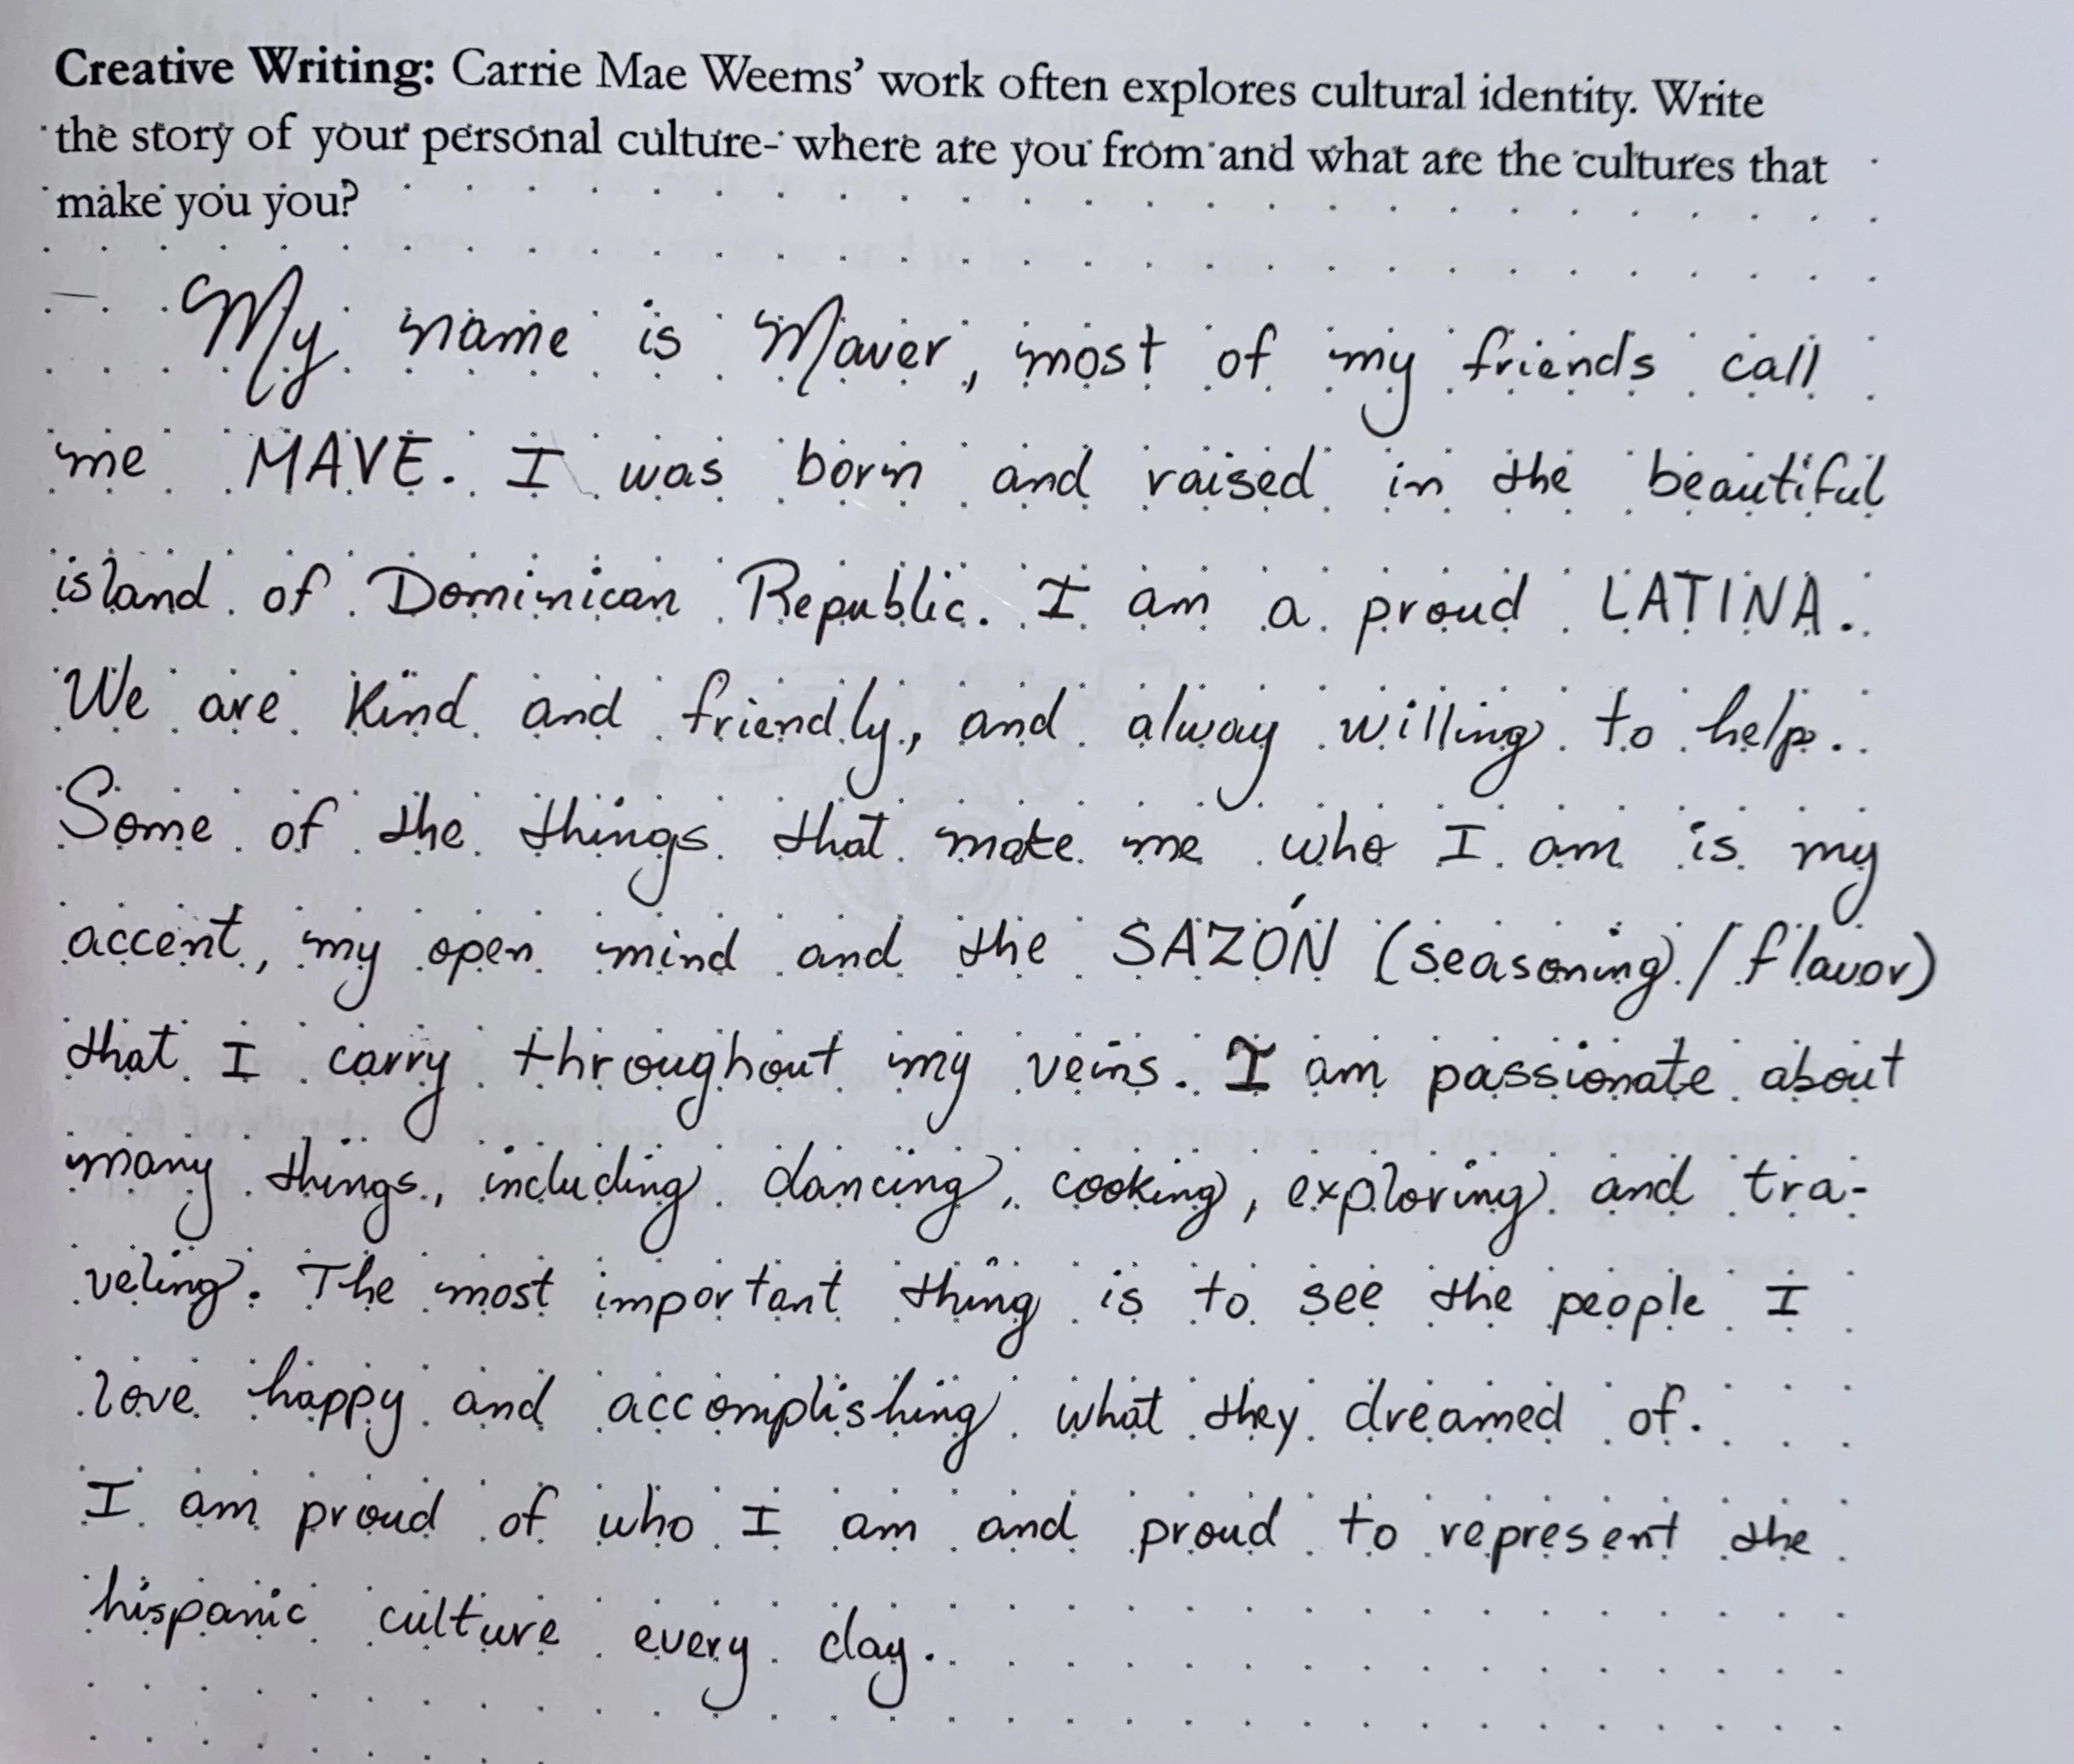 Creative Writing: Carrie Mae Weems’ work often explores cultural identity. Write
the story of your personal culture- where are you from and what are the cultures that
make you you?
My name is Maver, most of my friends call
me MAVE. I was born and raised in the beautiful
island of Dominican Republic. I am a proud LATINA.
We are kind and friendly, and alway willing to help.
Some of the things that make me who I am is my
accent, my open mind and the SAZÓN (seasoning/flavor)
that I carry throughout my veins. I am passionate about
many things, including dancing, cooking, exploring and tra-
veling. The most important thing is to see the people I
love happy and accomplishing what they dreamed of.
I am proud of who I am and proud to represent the
hispanic culture every day.